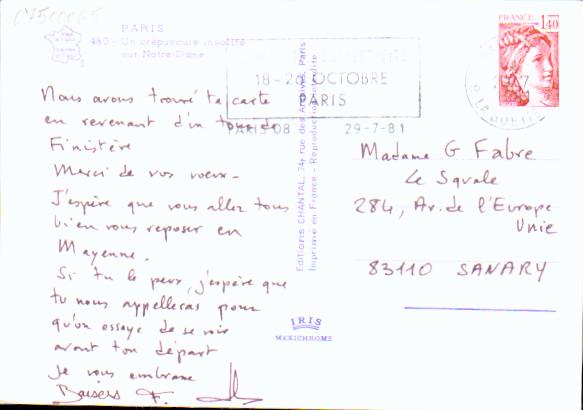 C7500065
PARIS
480 - Un crépuscule insolite
sur Notre-Dame
Nous avons trouvé ta carte
en revenant d'un tour de
Finistère
Merci de vos voeux -
J'espère que vous allez tous
bien vous reposer en
Mayenne -
Si tu le peux, j'espère que
tu nous appelleras pour
qu'on essaye de se voir
avant ton départ
Je vous embrasse
Baisers F.
Editions CHANTAL, 74, rue des Archives, Paris
Imprimé en France - Reproduction interdite
IRIS
MEXICHROME
18-26 OCTOBRE
PARIS
PARIS 08 29-7-81
FRANCE
1,40
Madame G Fabre
Le Squale
284, Av. de l'Europe
Unie
83110 SANARY